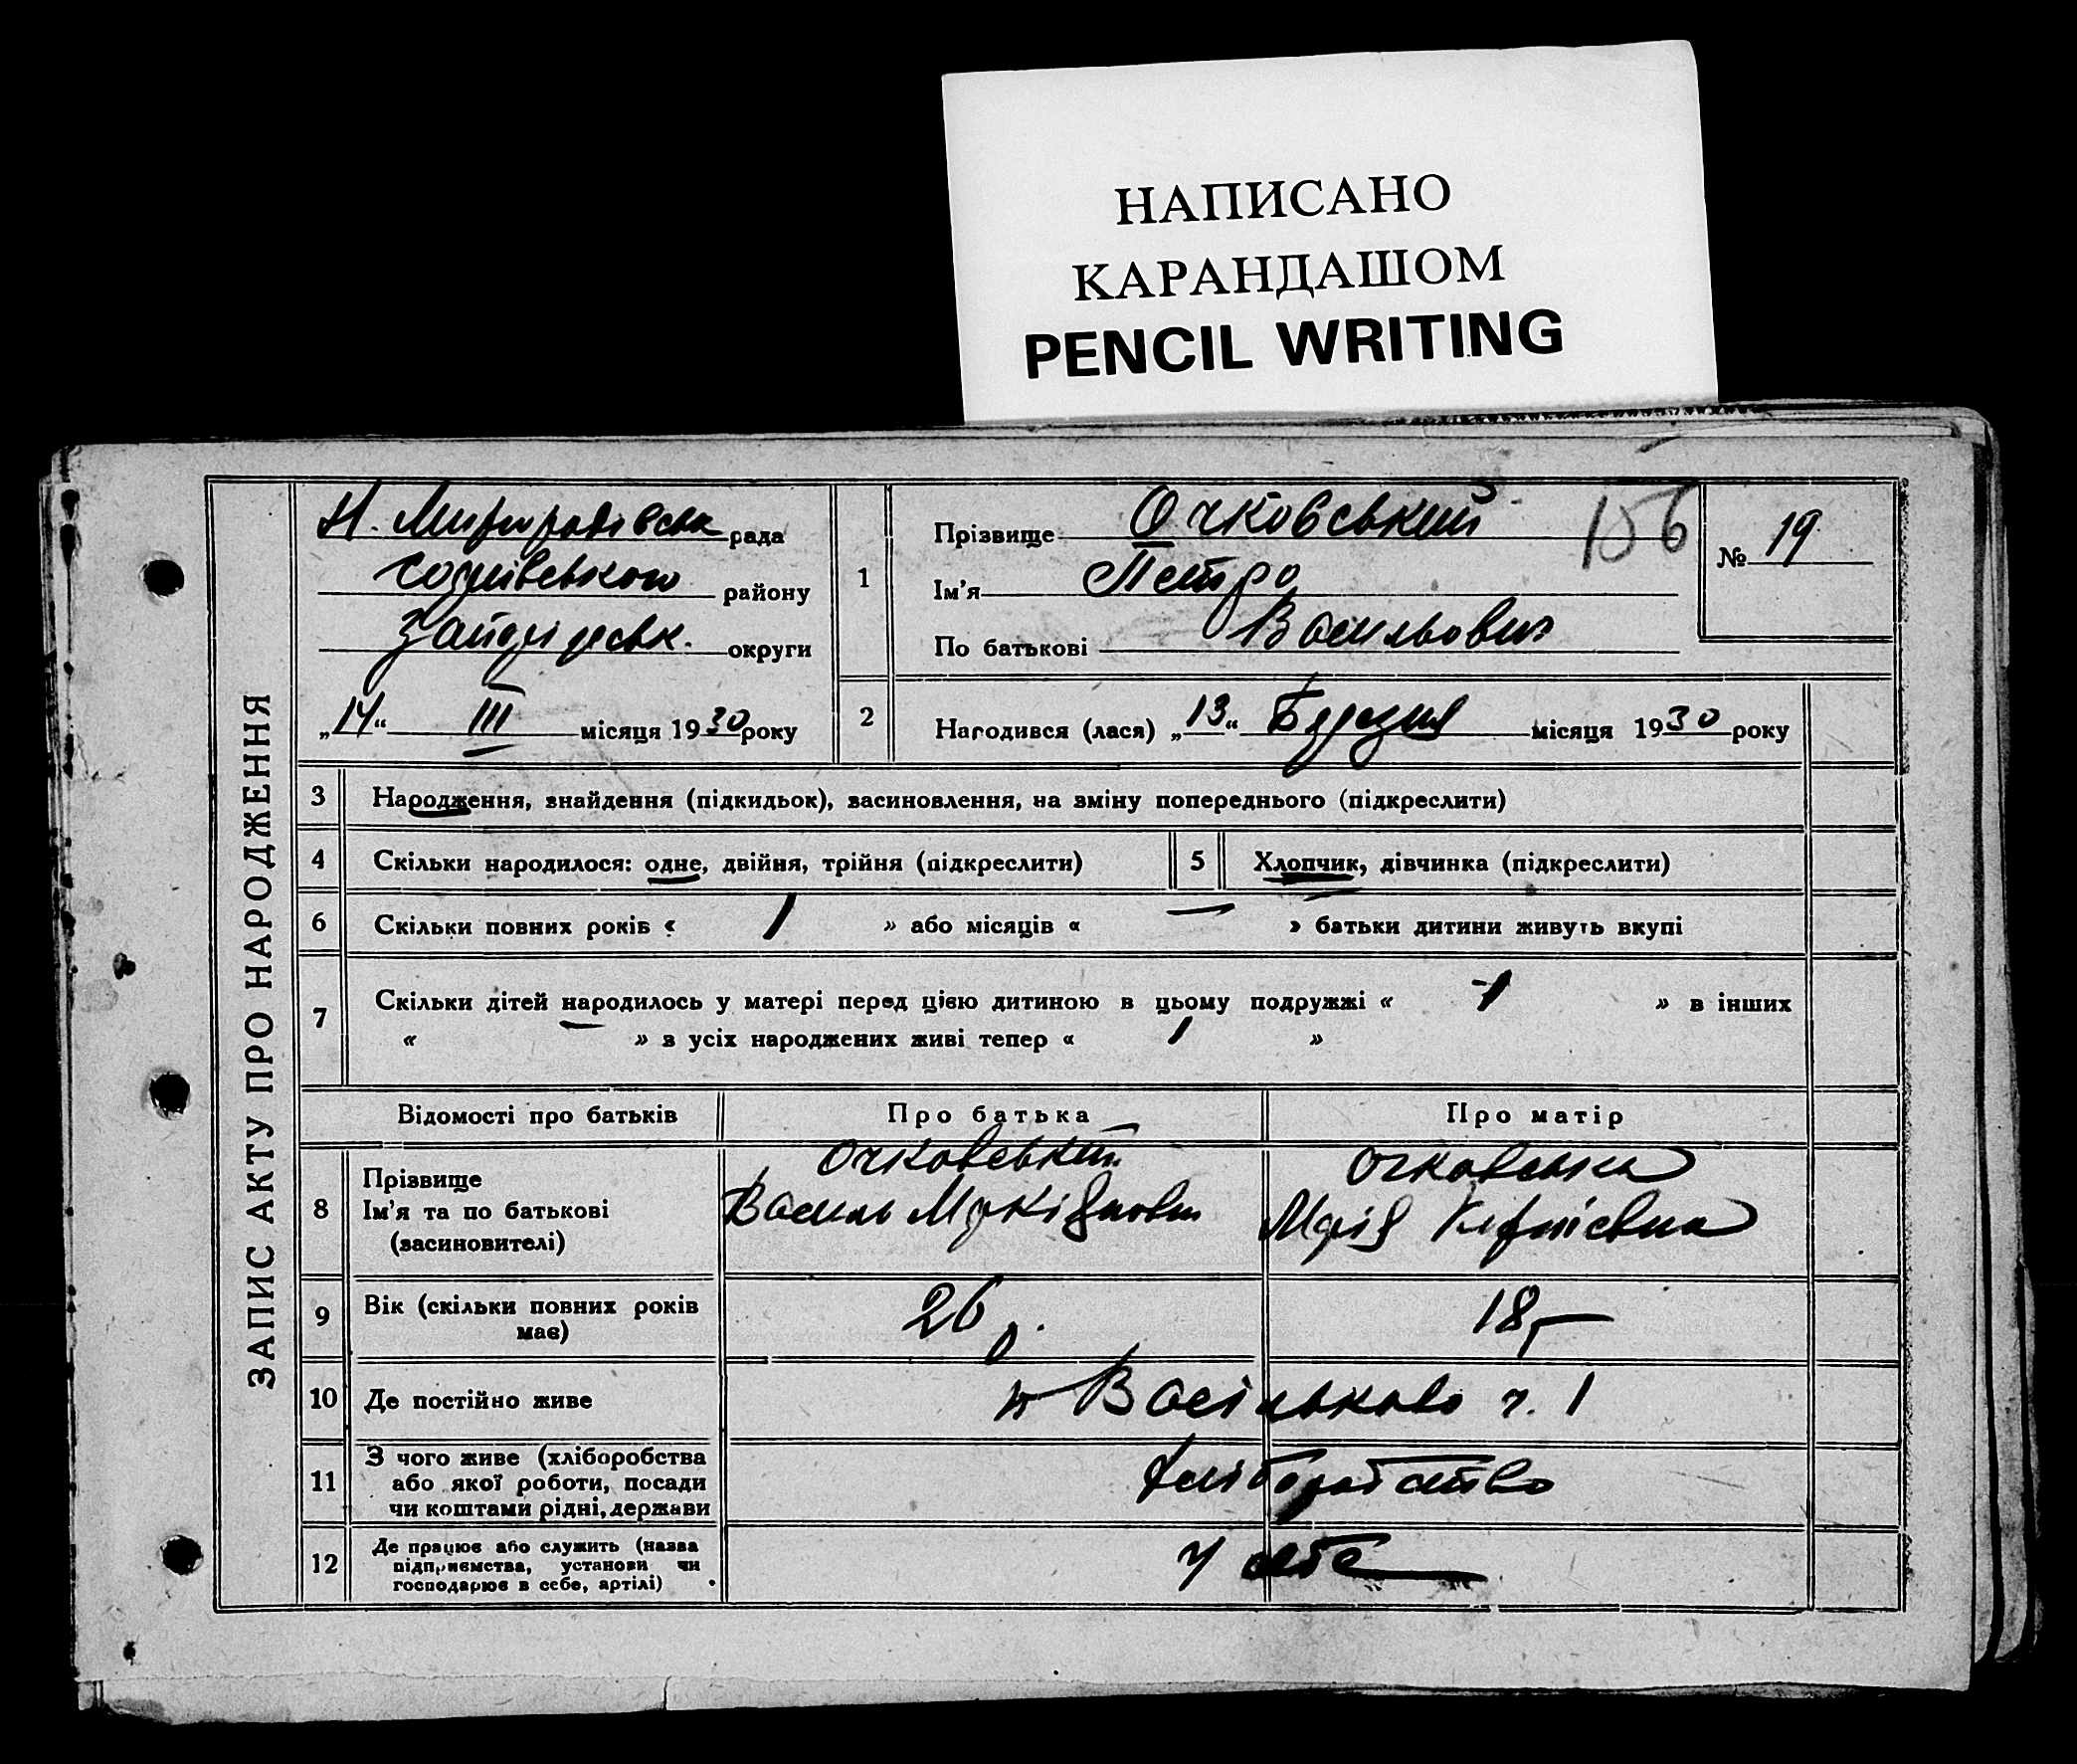 НАПИСАНО
КАРАНДАШОМ
PENCIL WRITING
ЗАПИС АКТУ ПРО НАРОДЖЕННЯ
рада
району
округи
„14“ III місяця 1930 року
1
Прізвище Очковський
Ім'я Петро
По батькові Васильович
156
№ 19
2 Народився (лася) „13“ Березня місяця 1930 року
3 Народження, знайдення (підкидьок), засиновлення, на зміну попереднього (підкреслити)
4 Скільки народилося: одне, двійня, трійня (підкреслити) 5 Хлопчик, дівчинка (підкреслити)
6 Скільки повних років « 1 » або місяців « — » батьки дитини живуть вкупі
7 Скільки дітей народилось у матері перед цією дитиною в цьому подружжі « 1 » в інших
« — » з усіх народжених живі тепер « 1 »
Відомості про батьків Про батька Про матір
8 Прізвище Очковський Очковська
Ім'я та по батькові Василь Марія
(засиновителі)
9 Вік (скільки повних років має) 26 18
10 Де постійно живе ч. 1
11 З чого живе (хліборобства
або якої роботи, посади
чи коштами рідні, держави
хліборобство
12 Де працює або служить (назва
підприємства, установи чи
господарює в себе, артілі)
у себе